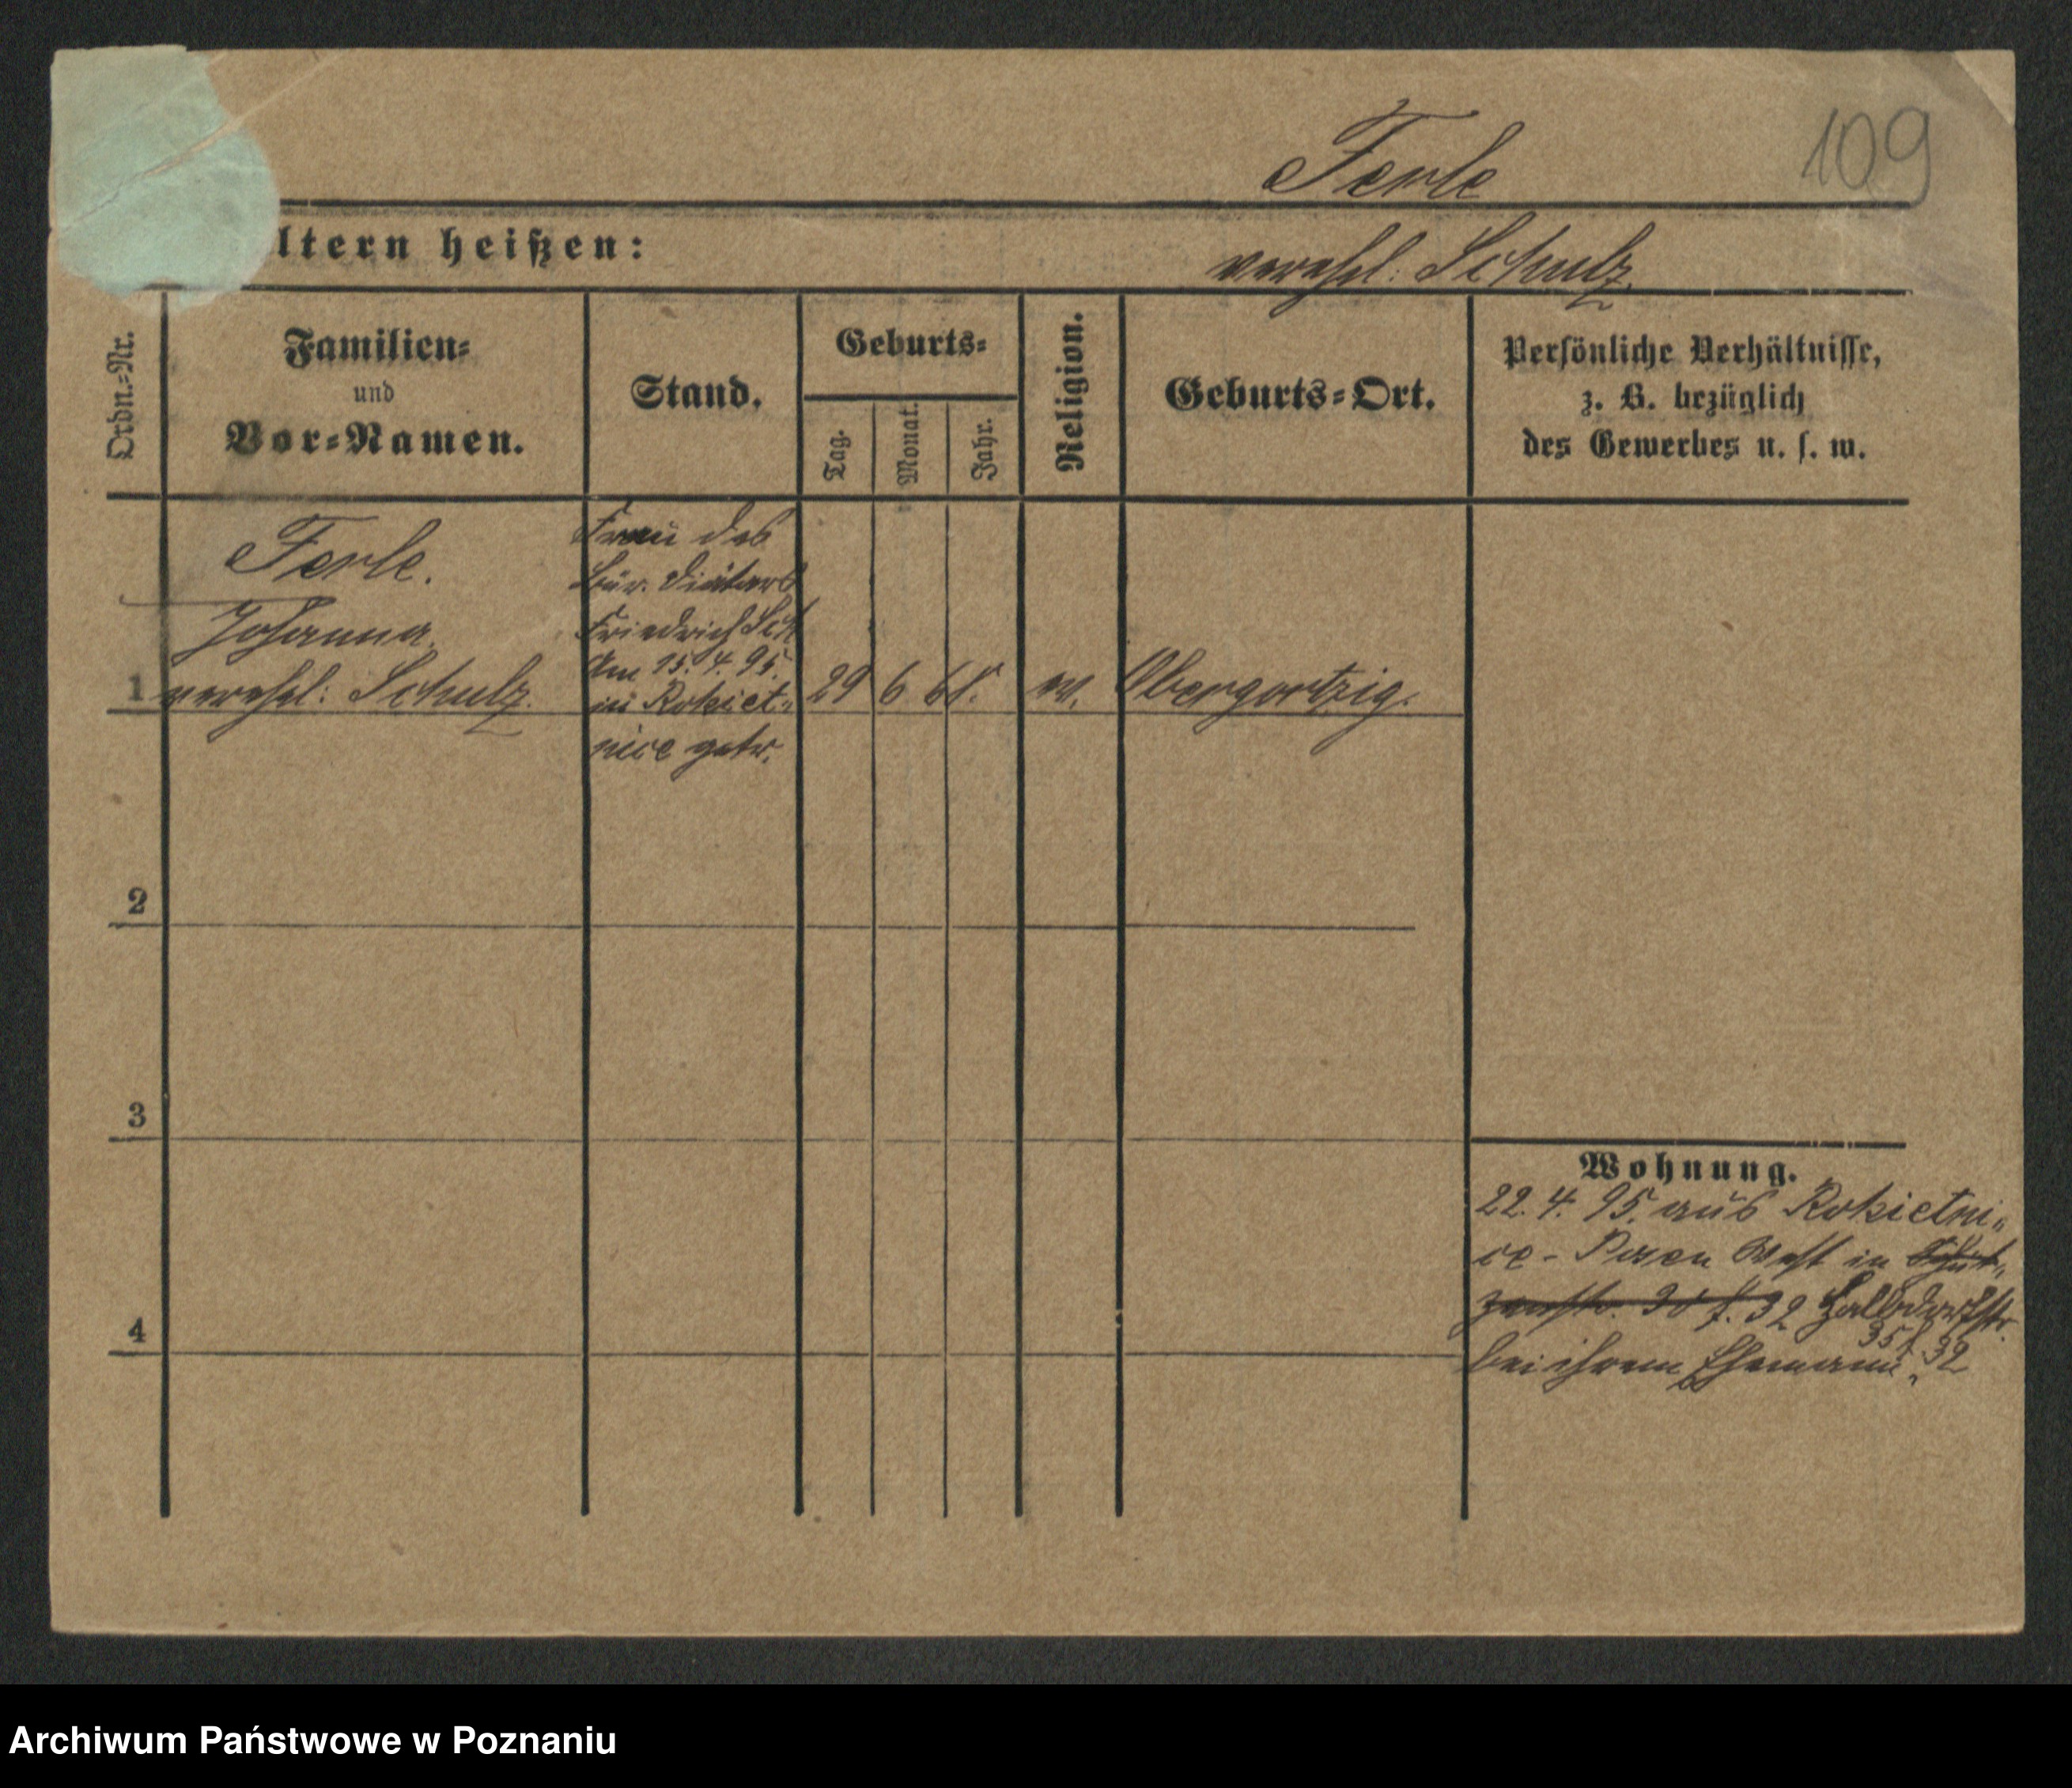 Ferle
109
ltern heißen:
verehel: Schulz.
Ordn.=Nr.
Familien=
und
Vor=Namen.
Stand.
Geburts=
Tag.
Monat.
Jahr.
Religion.
Geburts=Ort.
Persönliche Verhältnisse,
z. B. bezüglich
des Gewerbes u. s. w.
Ferle.
Johanna.
1 verehel: Schulz.
Frau des
Bür. Diätars
Friedrich Sch
Am 15. 4. 95.
in Rokiet-
nice getr.
29 6 68.
Obergortzig.
2
3
4
Wohnung.
22. 4. 95. aus Rokietni-
ce - Posen West in Schüt-
zenstr. 30 f. 32 Halbdorfstr.
35 f. 32
bei ihrem Ehemann.
Archiwum Państwowe w Poznaniu